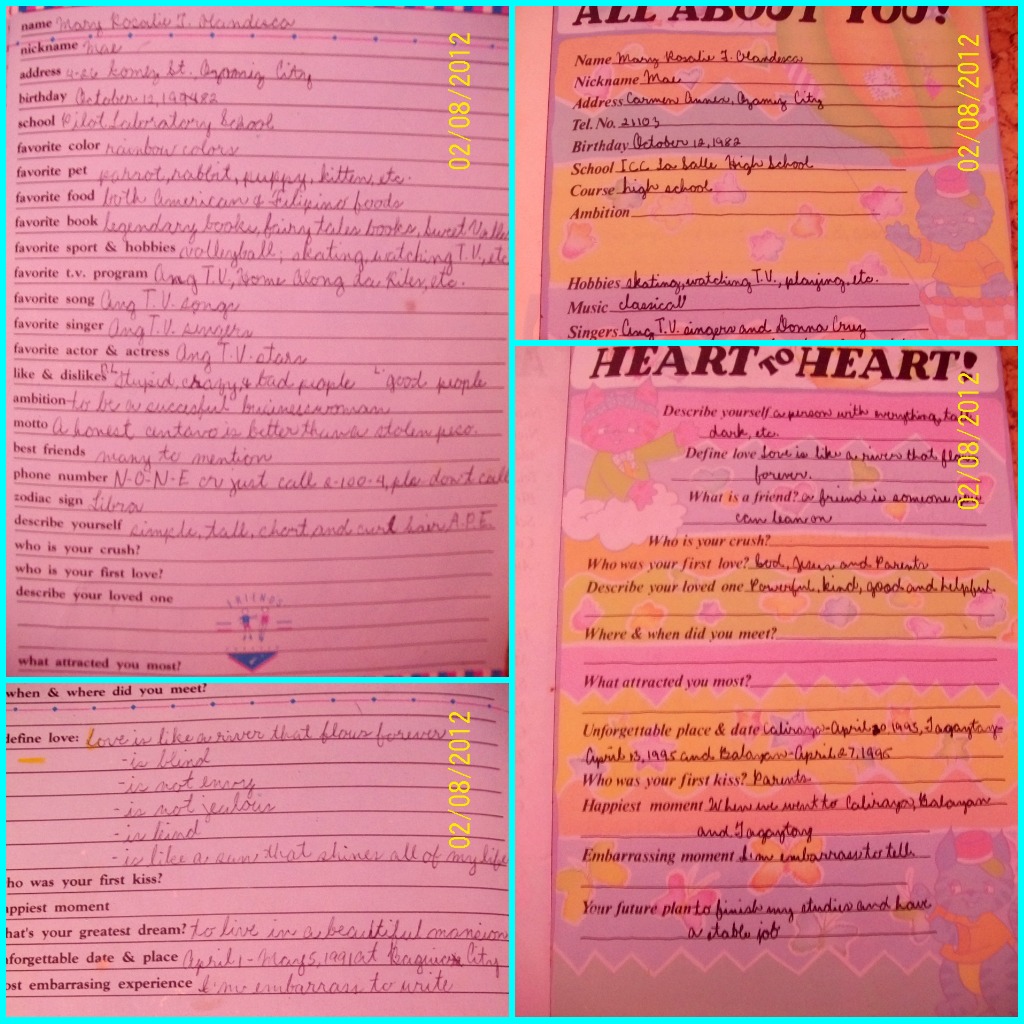 name Mary Rosalie T. Olandesca
nickname Mae
address 4-26 St. Ozamiz City
birthday October 12, 1982
school Pilot Laboratory School
favorite color rainbow colors
favorite pet parrot, rabbit, puppy, kitten, etc.
favorite food both American & Filipino foods
favorite book legendary books, fairy tales books, Sweet Valley
favorite sport & hobbies volleyball; skating, watching T.V., etc
favorite t.v. program Ang T.V., Home Along da Riles, etc.
favorite song Ang T.V. songs
favorite singer Ang T.V. singers
favorite actor & actress Ang T.V. stars
like & dislikes DL Stupid, crazy, & bad people L good people
ambition to be a succesful businesswoman
motto A honest centavo is better than a stolen peso.
best friends many to mention
phone number N-O-N-E or just call 2-100-4, pls don't call
zodiac sign Libra
describe yourself simple, tall, short and curl hair A.P.E.
who is your crush?
who is your first love?
describe your loved one
FRIENDS
what attracted you most?
02/08/2012
when & where did you meet?
define love: Love is like a river that flows forever
- is blind
- is not envoy
- is not jealous
- is kind
- is like a sun that shines all of my life
ho was your first kiss?
appiest moment
hat's your greatest dream? to live in a beautiful mansion
nforgettable date & place April 1 - May 5, 1991 at Baguio City
ost embarrasing experience I'm embarrass to write
02/08/2012
ALL ABOUT YOU!
Name Mary Rosalie T. Olandesca
Nickname Mae
Address Carmen Annex, Ozamiz City
Tel. No. 21103
Birthday October 12, 1982
School I.C.C. La Salle High School
Course high school
Ambition
Hobbies skating, watching T.V., playing, etc.
Music classical
Singers Ang T.V. singers and Donna Cruz
02/08/2012
HEART TO HEART!
Describe yourself a person with everything, tall
dark, etc.
Define love Love is like a river that flows
forever.
What is a friend? a friend is someone you
can lean on
Who is your crush?
Who was your first love? God, Jesus and Parents
Describe your loved one Powerful, kind, good and helpful.
Where & when did you meet?
What attracted you most?
Unforgettable place & date Caliraya-April 20, 1995, Tagaytay
April 13, 1995 and Balayan-April 27, 1995
Who was your first kiss? Parents
Happiest moment When we went to Caliraya, Balayan
and Tagaytay
Embarrassing moment I'm embarrass to tell
Your future plan to finish my studies and have
a stable job
02/08/2012